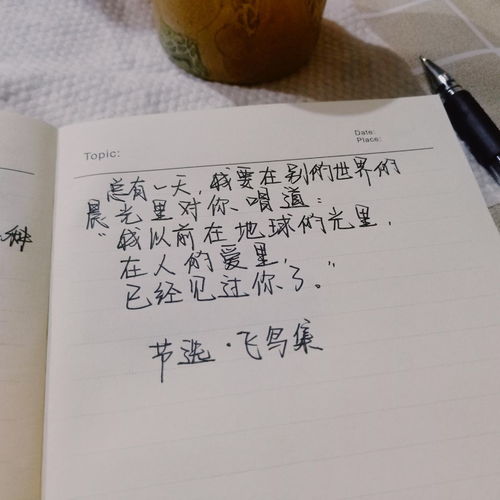 种
Topic:
Date:
Place:
总有一天,我要在别的世界的
晨光里对你唱道:
“我以前在地球的光里,
在人的爱里,
已经见过你了。”
节选·飞鸟集